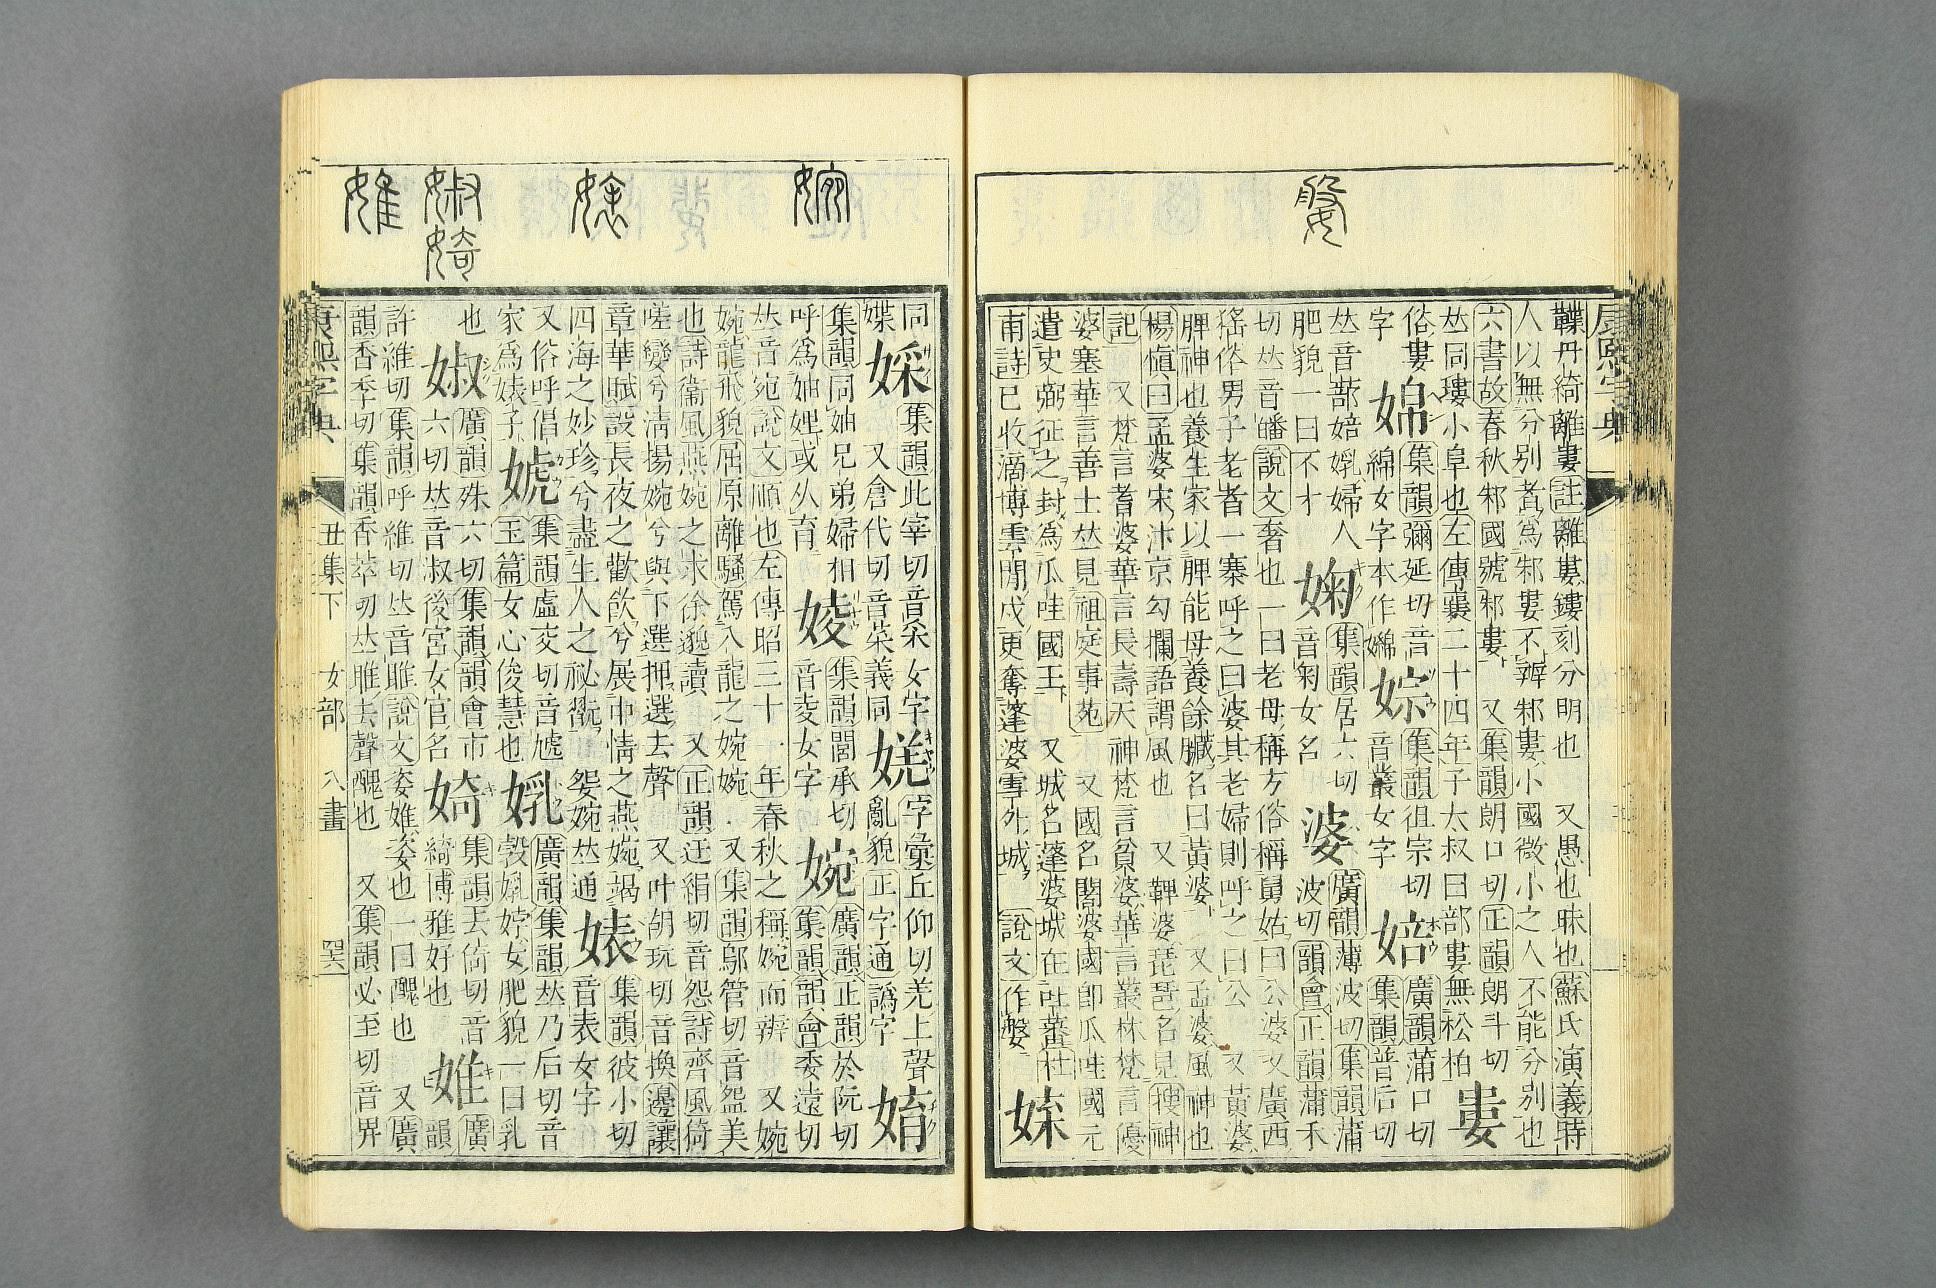 康熙字典
鞻丹綺離婁註離婁鏤刻分明也 又愚也昧也蘇氏演義時
人以無分別者爲邾婁不辨邾婁小國微小之人不能分別也
六書故春秋邾國號邾婁 又集韻朗口切正韻朗斗切
𠀤同塿小阜也左傳襄二十四年子太叔曰部婁無松柏
婁
俗婁
字
婂
集韻彌延切音
綿女字本作嬵
婃
集韻徂宗切
音叢女字
婄
廣韻蒲口切
集韻普后切
𠀤音蔀婄㜷婦人
肥貌一曰不才
婅
集韻居六切
音匊女名
婆
廣韻薄波切集韻蒲
波切韻會正韻蒲禾
切𠀤音皤說文奢也一曰老母稱方俗稱舅姑曰公婆又廣西
猺俗男子老者一寨呼之曰婆其老婦則呼之曰公 又黃婆
脾神也養生家以脾能母養餘臟名曰黃婆 又孟婆風神也
楊愼曰孟婆宋汴京勾欄語謂風也 又鞞婆琵琶名見搜神
記 又梵言耆婆華言長壽天神梵言貧婆華言叢林梵言優
婆塞華言善士𠀤見祖庭事苑 又國名闍婆國卽瓜哇國元
遣史弼征之封爲瓜哇國王 又城名蓬婆城在吐蕃杜
甫詩已收滴博雲閒戍更奪蓬婆雪外城 說文作媻
婇
同
媟
婇
集韻此宰切音采女字
又倉代切音菜義同
字彙丘仰切羌上聲
亂貌正字通譌字
集韻同妯兄弟婦相
呼爲妯娌或从育
婈
集韻閭承切
音夌女字
婉
廣韻正韻於阮切
集韻韻會委遠切
𠀤音宛說文順也左傳昭三十一年春秋之稱婉而辨 又婉
婉龍飛貌屈原離騷駕八龍之婉婉 又集韻鄔管切音盌美
也詩衞風燕婉之求徐邈讀 又正韻迂絹切音怨詩齊風猗
嗟孌兮淸揚婉兮與下選押選去聲 又叶胡玩切音換邊讓
章華賦設長夜之歡飮兮展中情之燕婉竭
四海之妙珍兮盡生人之祕翫 婉𠀤通
婊
集韻彼小切
音表女字
又俗呼倡
家爲婊子
婋
集韻虛交切音虓
玉篇女心俊慧也
㜷
廣韻集韻𠀤乃后切音
㝅㜷婄女肥貌一曰乳
也
婌
廣韻殊六切集韻韻會市
六切𠀤音叔後宮女官名
婍
集韻去倚切音
綺博雅好也
婎
廣
韻
許維切集韻呼維切𠀤音睢說文姿婎姿也一曰醜也 又廣
韻香季切集韻香萃切𠀤睢去聲醜也 又集韻必至切音畀
康熙字典
丑集下 女部 八畫